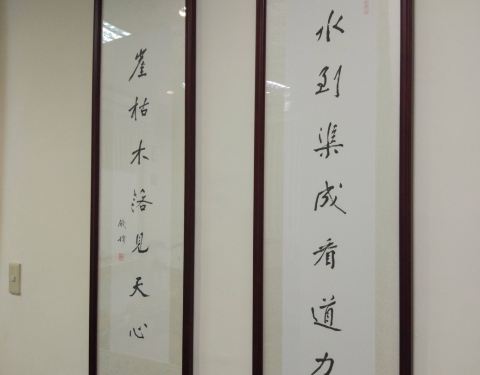 水到渠成看道力
崖枯木落見天心